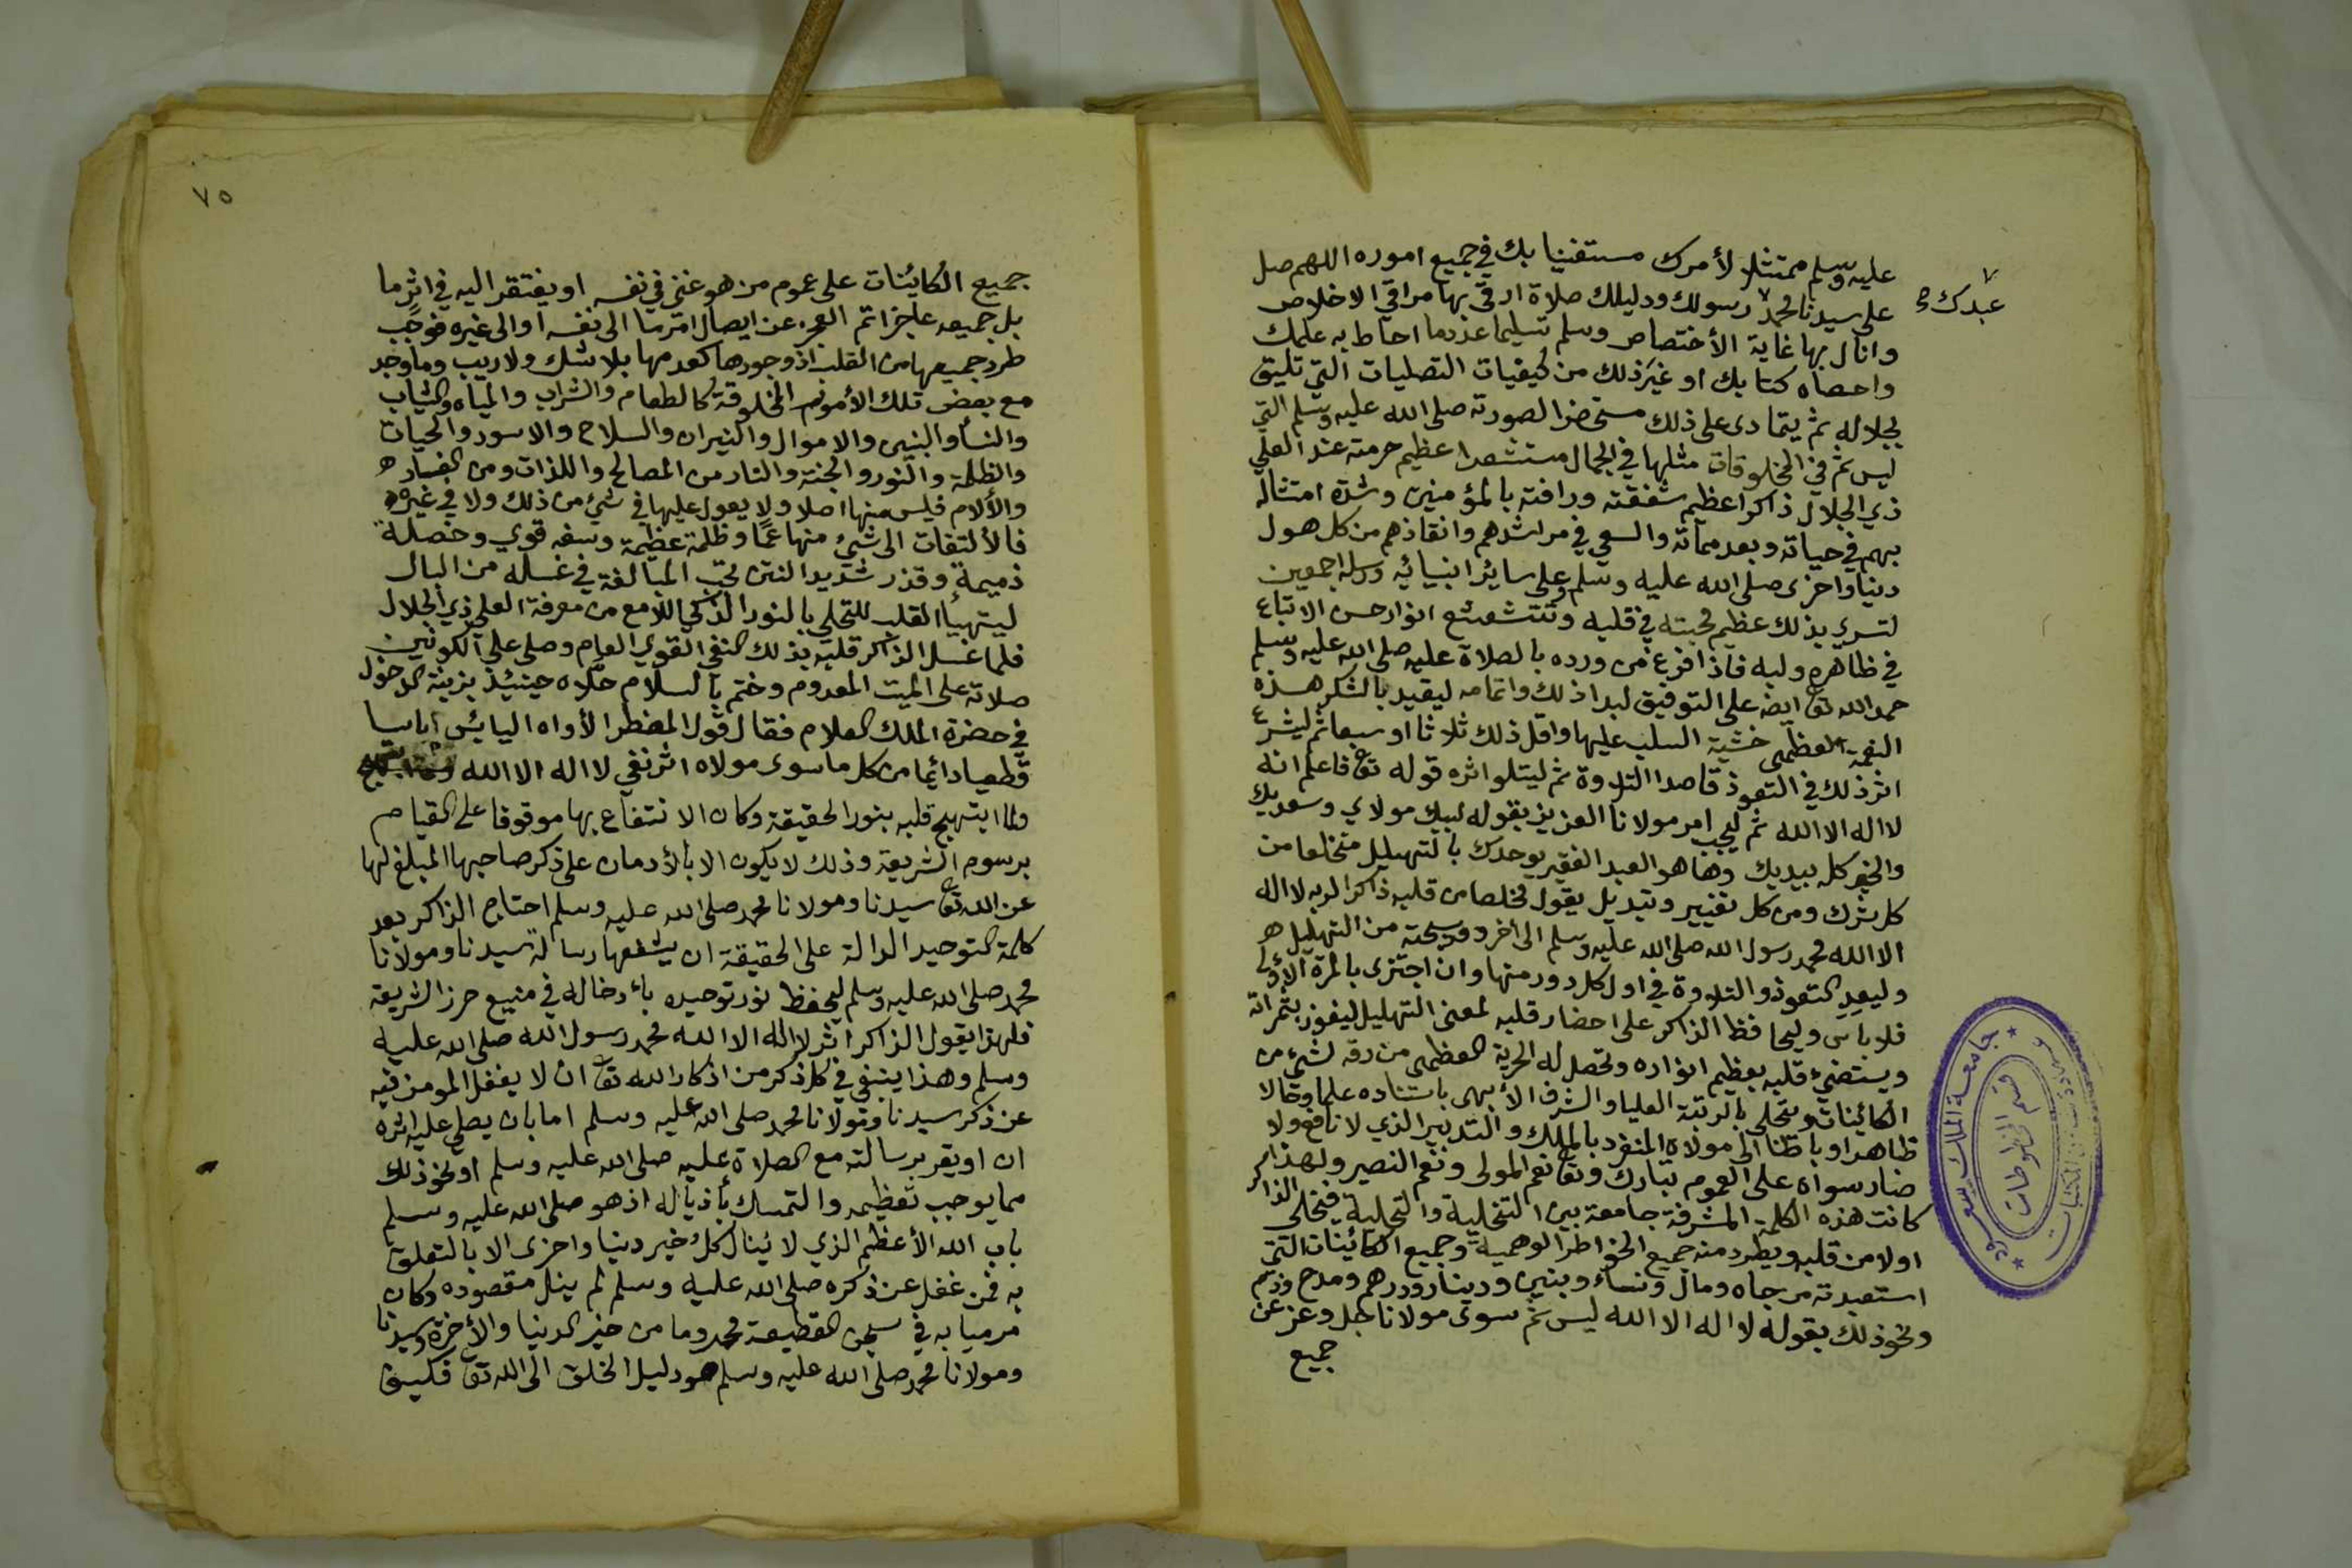 عليه وسلم ممتثلا لأمرك مستغنيا بك في جميع اموره اللهم صل
على سيدنا محمد رسولك ودليلك صلاة ارقى بها مراقي الاخلاص
عبدك صح
وانال بها غاية الأختصاص وسلم تسليما عدد ما احاط به علمك
واحصاه كتابك او غير ذلك من كيفيات التصليات التي تليق
بجلاله ثم يتمادى على ذلك مستحضرا لصورته صلى الله عليه وسلم التي
ليس ثم في المخلوقات مثلها في الجمال مستشعرا عظيم حرمته عند العلي
ذي الجلال ذاكرا عظيم شفقته ورافته بالمؤمنين وشدة امتثاله
بهم في حياته وبعد مماته والسعي في مراشدهم وانقاذهم من كل هول
دنيا واخرى صلى الله عليه وسلم وعلى سائر انبيائه ورسله اجمعين
لتسري بذلك عظيم محبته في قلبه وتتشعشع انوار حسن الاتباع
في ظاهره ولبه فاذا فرغ من ورده بالصلاة عليه صلى الله عليه وسلم
حمد الله تعا ايضا على التوفيق لبداذلك واتمامه ليقيد بالشكر هذه
النعمة العظمى خشية السلب عليها واقل ذلك ثلاثا او سبعا ثم ليشرع
اثر ذلك في التعوذ قاصدا التلاوة ثم ليتلوا اثره قوله تعا فاعلم انه
لا اله الا الله ثم ليجب امر مولانا العزيز بقوله لبيك مولاي وسعديك
والخير كله بيديك وها هو العبد الفقير يوحدك بالتهليل منخلعا من
كل شرك ومن كل تغيير وتبديل يقول مخلصا من قلبه ذاكرا لربه لا اله
الا الله محمد رسول الله صلى الله عليه وسلم الى اخر دور سبحته من التهليل
وليعد التعوذ والتلاوة في اول كل دور منها وان اجتزى بالمرة الأولى
فلا باس وليحافظ الذاكر على احضار قلبه لمعنى التهليل ليفوز بثمراته
ويستضيء قلبه بعظيم انواره وتحصل له الحرية العظمى من رقه لشيء من
الكائنات ويتحلى بالرتبة العليا والشرف الأبهى باستناده علما وحالا
ظاهرا وباطنا الى مولاه المنفرد بالملك والتدبير الذي لا نافع ولا
ضار سواه على العموم تبارك وتعا نعم المولى ونعم النصير ولهذا
كانت هذه الكلمة المشرفة جامعة بين التخلية والتحلية فيخلي الذاكر
اولا من قلبه ويطرد منه جميع الخواطر الوهمية وجميع الكائنات التي
استعبدته من جاه ومال ونساء وبنين ودينار ودرهم ومدح وذم
ونحو ذلك بقوله لا اله الا الله ليس ثم سوى مولانا جل وعز عن
جميع
جامعة الملك سعود
قسم المخطوطات
٧٥
جميع الكائنات على عموم من هو غني في نفسه او يفتقر اليه في اثر ما
بل جميعه عاجز اتم العجز عن ايصال اثر ما الى نفسه او الى غيره فوجب
طرد جميعها من القلب اذ وجودها كعدمها بلا شك ولا ريب وما وجد
مع بعض تلك الأمور المخلوقة كالطعام والشراب والمياه والثياب
والنسأ والبنين والاموال والنيران والسلاح والاسود والحيات
والظلمة والنور والجنة والنار من المصالح واللذات ومن الفساد
والألام فليس منها اصلا ولا يعول عليها في شيء من ذلك ولا في غيره
فالألتفات الى شيئ منها عمًا وظلمة عظيمة وسفه قوي وخصلة
ذميمة وقذر شديد النتن يجب المبالغة في غسله من البال
ليتهيأ القلب للتحلي بالنور الذكي اللامع من معرفة العلي ذي الجلال
فلما غسل الذاكر قلبه بذلك النفي القوي العام وصلى على الكونين
صلاته على الميت المعدوم وختم بالسلام حلاه حينئذ بزينة الدخول
في حضرة الملك العلام فقال قول المضطر الأواه اليائس اياسا
قطعيا دائما من كل ما سوى مولاه اثر نفي لا اله الا الله
ولما ابتهج قلبه بنور الحقيقة وكان الانتفاع بها موقوفا على القيام
برسوم الشريعة وذلك لا يكون الا بالأدمان على ذكر صاحبها المبلغ لها
عن الله تعا سيدنا ومولانا محمد صلى الله عليه وسلم احتاج الذاكر بعد
كلمة التوحيد الدالة على الحقيقة ان يشفعها برسالة سيدنا ومولانا
محمد صلى الله عليه وسلم ليحفظ نور توحيده بأدخاله في منيع حرز الشريعة
فلهذا يقول الذاكر اثر لا اله الا الله محمد رسول الله صلى الله عليه
وسلم وهذا ينبغي في كل ذكر من اذكار الله تعا ان لا يغفل المومن فيه
عن ذكر سيدنا ومولانا محمد صلى الله عليه وسلم اما بان يصلي عليه اثره
ان او يقر برسالته مع الصلاة عليه صلى الله عليه وسلم او نحو ذلك
مما يوجب تعظيمه والتمسك بأذياله اذ هو صلى الله عليه وسلم
باب الله الأعظم الذي لا ينال كل خير دنيا واخرى الا بالتعلق
به فمن غفل عن ذكره صلى الله عليه وسلم لم ينل مقصوده وكان
مرميا به في سجن القطيعة محروما من خير الدنيا والأخرة وسيدنا
ومولانا محمد صلى الله عليه وسلم هو دليل الخلق الى الله تعا فكيف